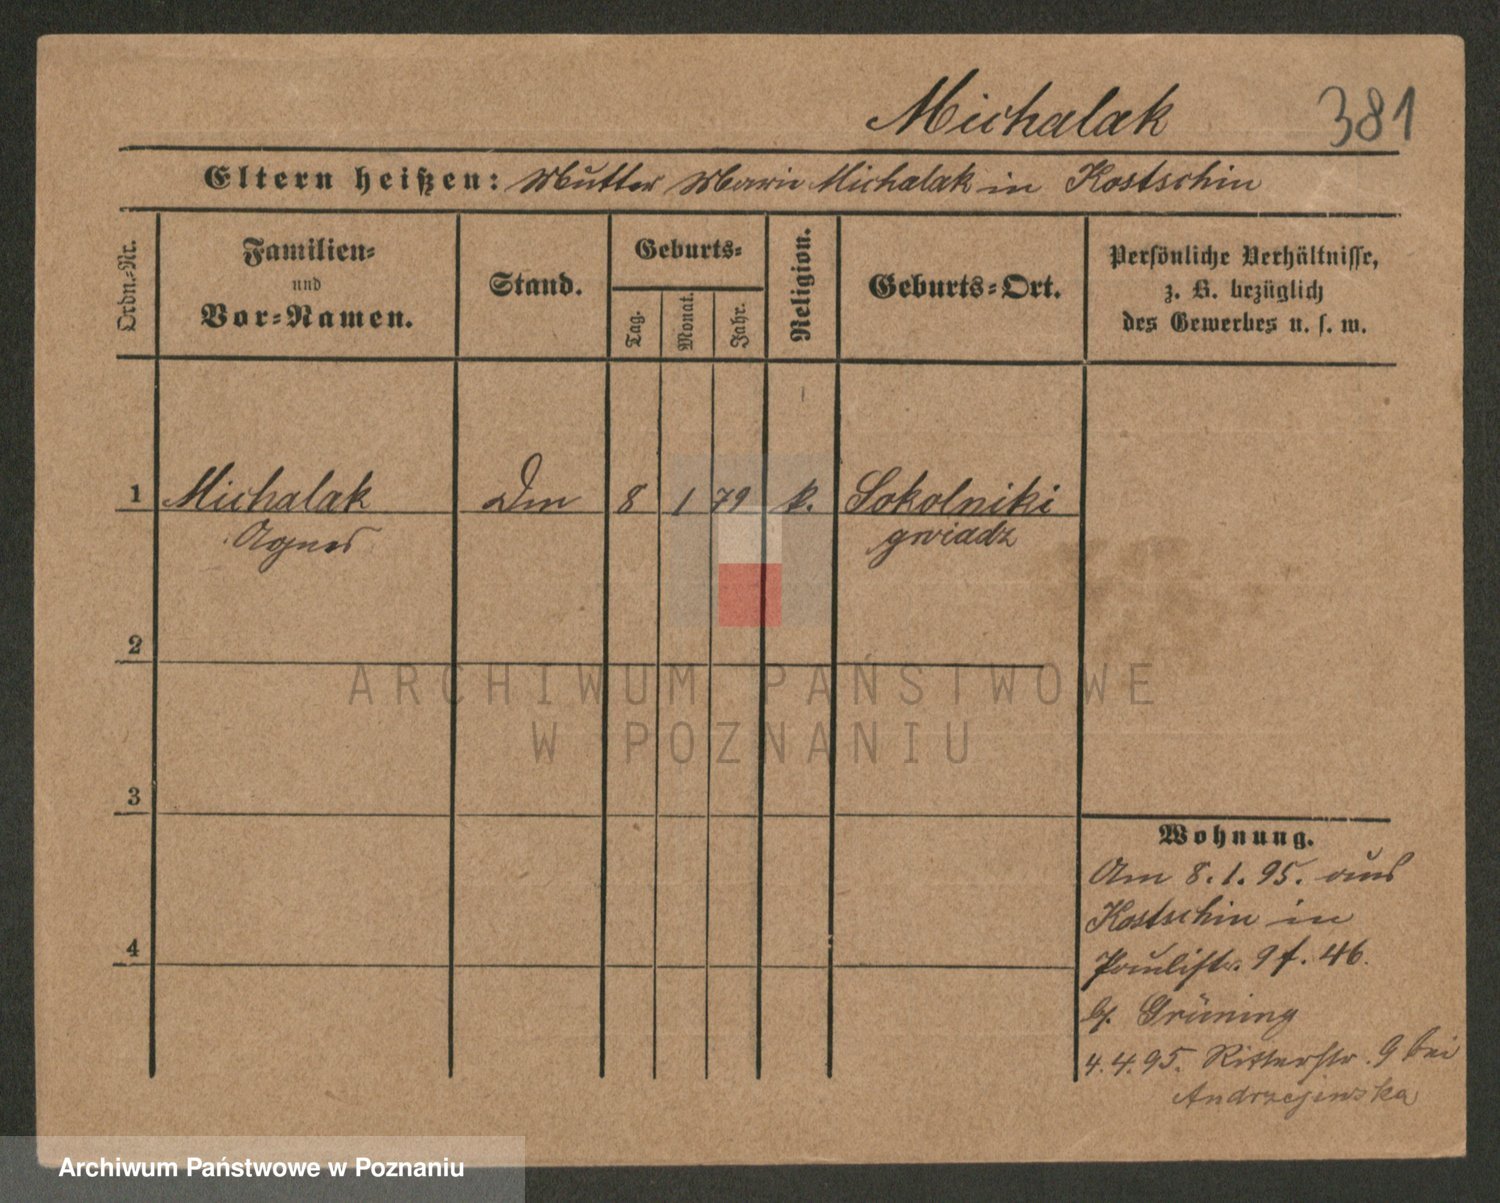 Michalak 381
Eltern heißen: Mutter Marie Michalak in Kostschin
Ordn.-Nr.
Familien-
und
Vor-Namen.
Stand.
Geburts-
Tag.
Monat.
Jahr.
Religion.
Geburts-Ort.
Persönliche Verhältnisse,
z. B. bezüglich
des Gewerbes u. s. w.
1 Michalak Dm 8 1 79 k. Sokolniki
Agnes gwiadz
2
3
4
Wohnung.
Am 8.1.95. aus
Kostschin in
Paulistr. 9 f. 46.
b. Grüning
4.4.95. Ritterstr. 9 bei
Andrzejewska
ARCHIWUM PAŃSTWOWE
W POZNANIU
Archiwum Państwowe w Poznaniu